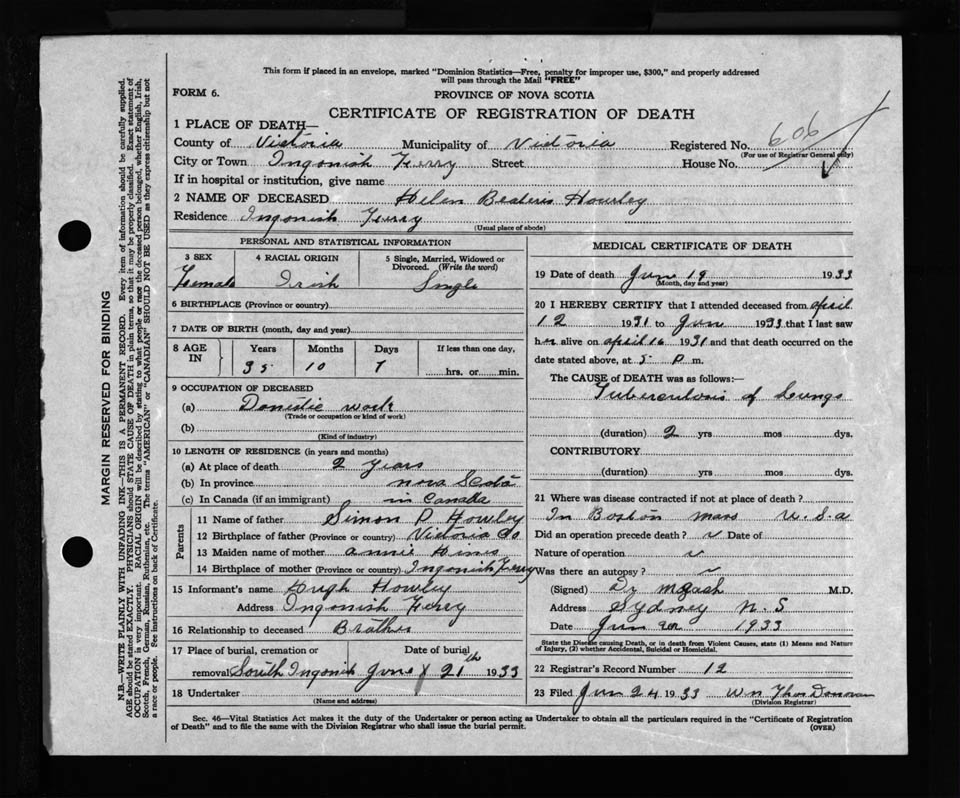 This form if placed in an envelope, marked "Dominion Statistics—Free, penalty for improper use, $300," and properly addressed
will pass through the Mail "FREE"
FORM 6.
PROVINCE OF NOVA SCOTIA
CERTIFICATE OF REGISTRATION OF DEATH
1 PLACE OF DEATH—
County of Victoria Municipality of Victoria Registered No. 606
(For use of Registrar General only)
City or Town Ingonish Ferry Street House No.
If in hospital or institution, give name
2 NAME OF DECEASED Helen Beatris Howley
Residence Ingonish Ferry
(Usual place of abode)
PERSONAL AND STATISTICAL INFORMATION
3 SEX 4 RACIAL ORIGIN 5 Single, Married, Widowed or
Divorced. (Write the word)
Female Irish Single
6 BIRTHPLACE (Province or country)
7 DATE OF BIRTH (month, day and year)
8 AGE IN Years Months Days If less than one day,
35 10 7 hrs. or min.
9 OCCUPATION OF DECEASED
(a) Domestic work
(Trade or occupation or kind of work)
(b)
(Kind of industry)
10 LENGTH OF RESIDENCE (in years and months)
(a) At place of death 2 Years
(b) In province Nova Scotia
(c) In Canada (if an immigrant) in Canada
Parents
11 Name of father Simon P Howley
12 Birthplace of father (Province or country) Victoria Co
13 Maiden name of mother Annie Hines
14 Birthplace of mother (Province or country) Ingonish Ferry
15 Informant's name Hugh Howley
Address Ingonish Ferry
16 Relationship to deceased Brother
17 Place of burial, cremation or Date of burial
removal South Ingonish June 21th 1933
18 Undertaker
(Name and address)
MEDICAL CERTIFICATE OF DEATH
19 Date of death June 19 1933
(Month, day and year)
20 I HEREBY CERTIFY that I attended deceased from April
12 1931 to June 1933 that I last saw
her alive on April 16 1931 and that death occurred on the
date stated above, at 5 P m.
The CAUSE of DEATH was as follows:—
Tuberculosis of Lungs
(duration) 2 yrs mos dys.
CONTRIBUTORY
(duration) yrs mos dys.
21 Where was disease contracted if not at place of death?
In Boston Mass U.S.a
Did an operation precede death? Date of
Nature of operation
Was there an autopsy?
(Signed) Dr M.D.
Address Sydney N.S
Date June 1933
State the Disease causing Death, or in death from Violent Causes, state (1) Means and Nature
of Injury, (2) whether Accidental, Suicidal or Homicidal.
22 Registrar's Record Number 12
23 Filed Jun 24 1933 Wm Thos Donovan
(Division Registrar)
Sec. 46—Vital Statistics Act makes it the duty of the Undertaker or person acting as Undertaker to obtain all the particulars required in the "Certificate of Registration
of Death" and to file the same with the Division Registrar who shall issue the burial permit.
(OVER)
MARGIN RESERVED FOR BINDING
N.B.—WRITE PLAINLY WITH UNFADING INK—THIS IS A PERMANENT RECORD. Every item of information should be carefully supplied.
AGE should be stated EXACTLY. PHYSICIANS should STATE CAUSE OF DEATH in plain terms, so that it may be properly classified. Exact statement of
OCCUPATION is very important. RACIAL ORIGIN will be described by stating to what people or race the deceased person belonged, whether English, Irish,
Scotch, French, German, Russian, Ruthenian, etc. The terms "AMERICAN" or "CANADIAN" SHOULD NOT BE USED as they express citizenship but not
a race or people. See instructions on back of Certificate.